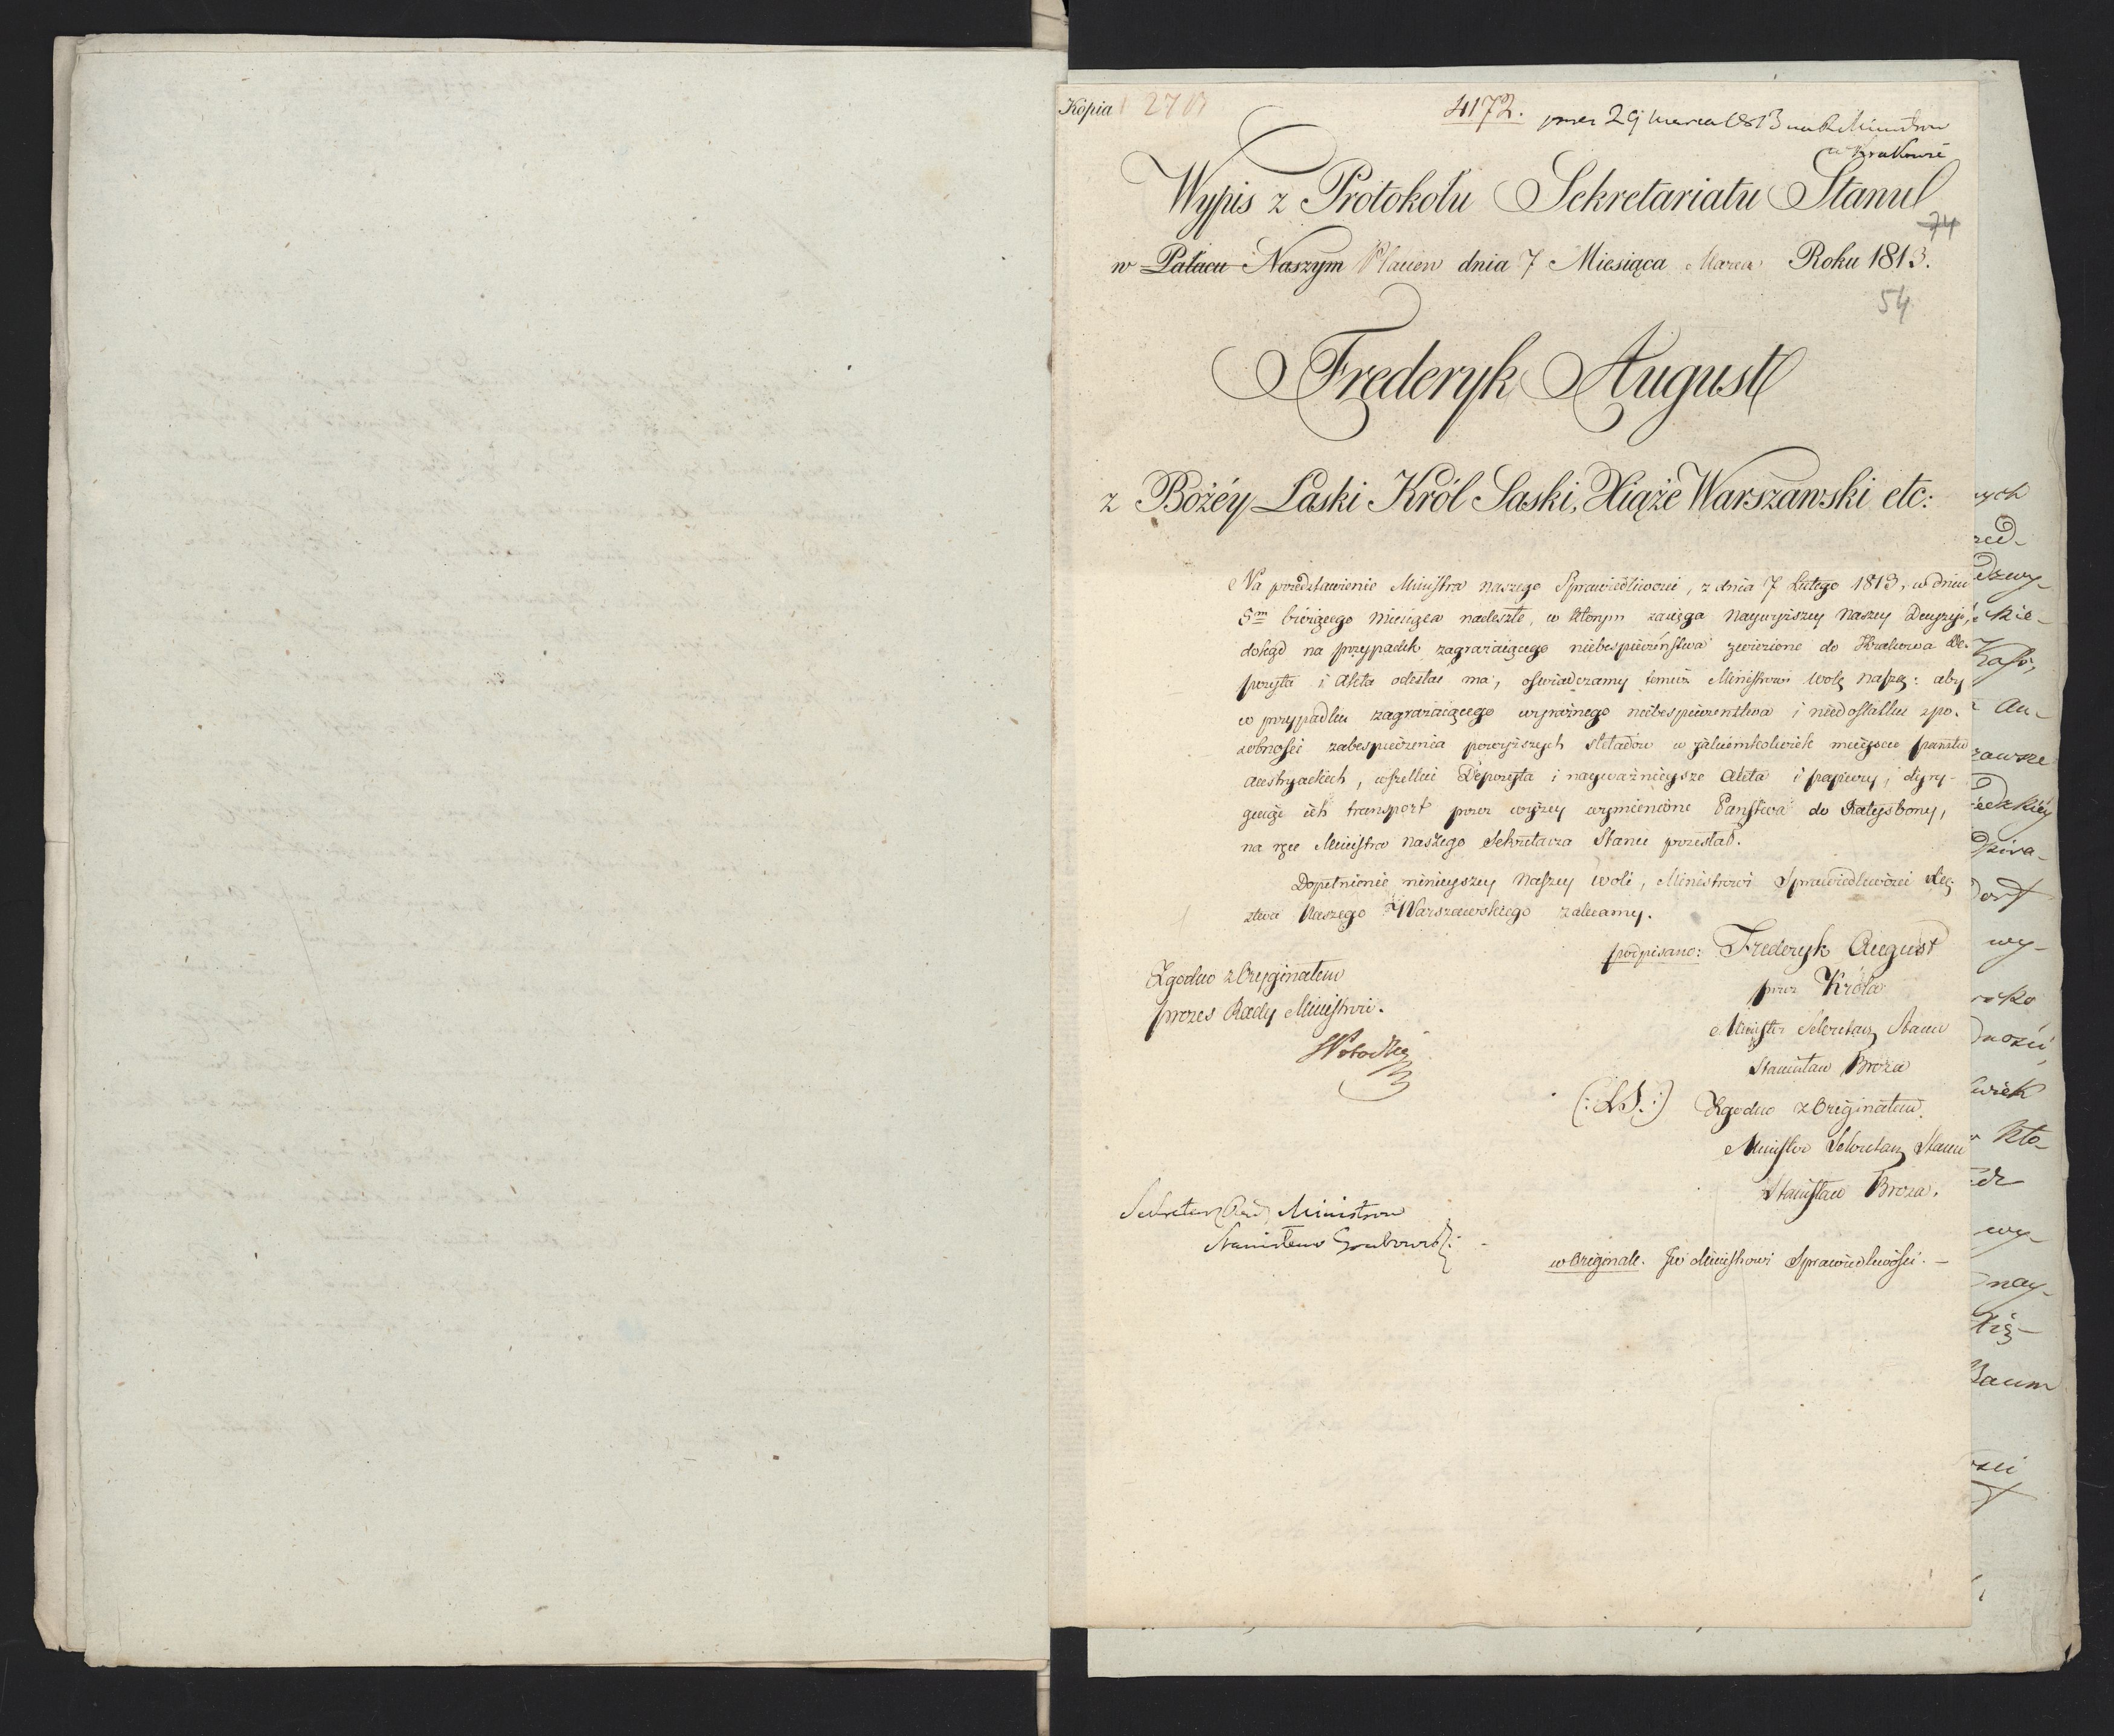 Kopia
4172. 29 Marca 1813
w Krakowie
Wypis z Protokołu Sekretariatu Stanu
74
w Pałacu Naszym Plauen dnia 7 Miesiąca Marca Roku 1813.
54
Frederyk August
z Bożéy Łaski Król Saski, Xiąże Warszawski etc:
Na przedstawienie Ministra naszego Sprawiedliwości, z dnia 7 Lutego 1813, w dniu
5m bieżącego miesiąca nadeszłe, w którym zasięga naywyższey naszey Decyzyi,
dokąd na przypadek zagrażaiącego niebespieczeństwa zwiezione do Krakowa De-
pozyta i Akta odesłać ma, oświadczamy temuż Ministrowi wolę naszą: aby
w przypadku zagrażaiącego wyraźnego niebespieczeństwa i niedostatku spo-
sobności zabespieczenia powyższych składów w jakiemkolwiek mieyscu państw
Austryackich, wszelkie Depozyta i nayważnieysze Akta i papiery, dyry-
guiąc ich transport przez wyżey wymienione Państwa do Ratysbony,
na ręce Ministra naszego Sekretarza Stanu przesłał.
Dopełnienie ninieyszey naszey woli, Ministrowi Sprawiedliwości Xię-
stwa Naszego Warszawskiego zalecamy.
podpisano: Frederyk August
Zgodno z Oryginałem
przez Króla
Prezes Rady Ministrów.
Minister Sekretarz Stanu
Stanisław Breza
(:LS.:) Zgodno z Originałem.
Minister Sekretarz Stanu
Stanisław Breza.
Sekretarz Rady Ministrów
Stanisław Grabowski
w Originale. Jw Ministrowi Sprawiedliwości. –
ych
kie-
Au-
Dort
wy-
kto-
wy-
nay-
Xię-
Baum